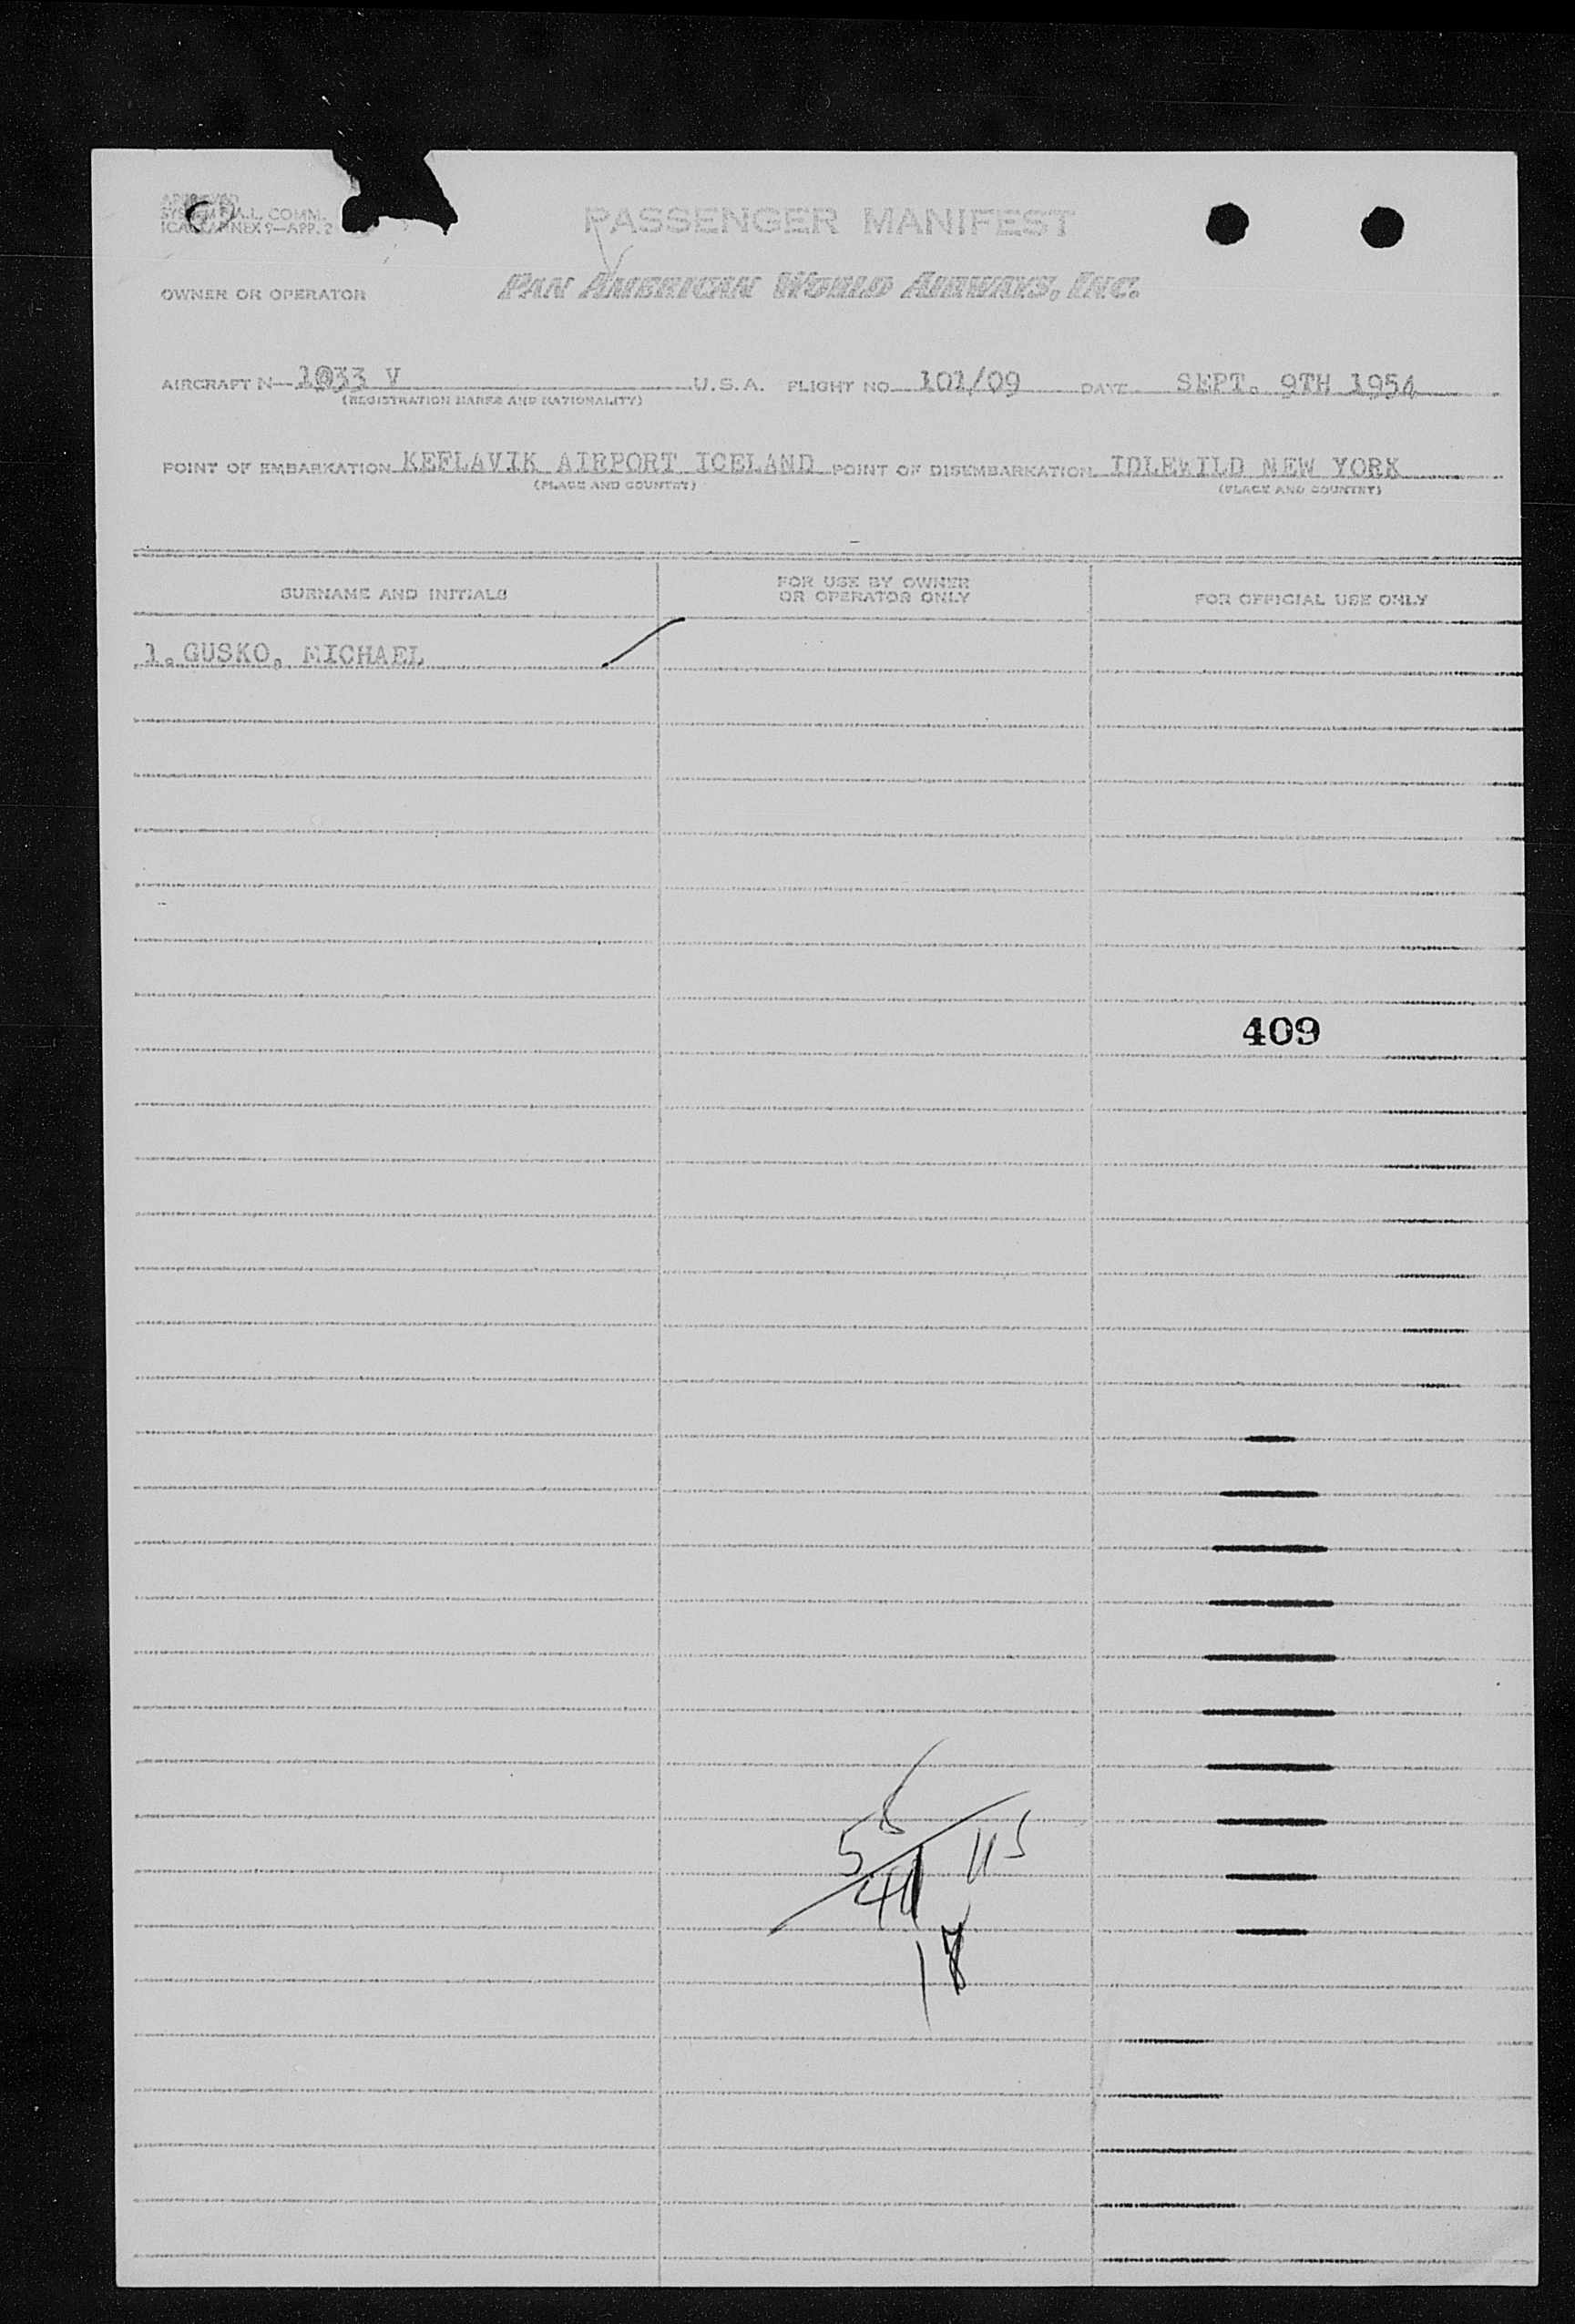 APPROVED
SYSTEM F.A.L. COMM.
ICAO ANNEX 9—APP. 2
PASSENGER MANIFEST
OWNER OR OPERATOR PAN AMERICAN WORLD AIRWAYS, INC.
AIRCRAFT N— 1033 V U.S.A. FLIGHT NO. 101/09 DATE SEPT. 9TH 1954
(REGISTRATION MARKS AND NATIONALITY)
POINT OF EMBARKATION KEFLAVIK AIRPORT ICELAND POINT OF DISEMBARKATION IDLEWILD NEW YORK
(PLACE AND COUNTRY) (PLACE AND COUNTRY)
SURNAME AND INITIALS
FOR USE BY OWNER
OR OPERATOR ONLY
FOR OFFICIAL USE ONLY
1. GUSKO, MICHAEL
409
18